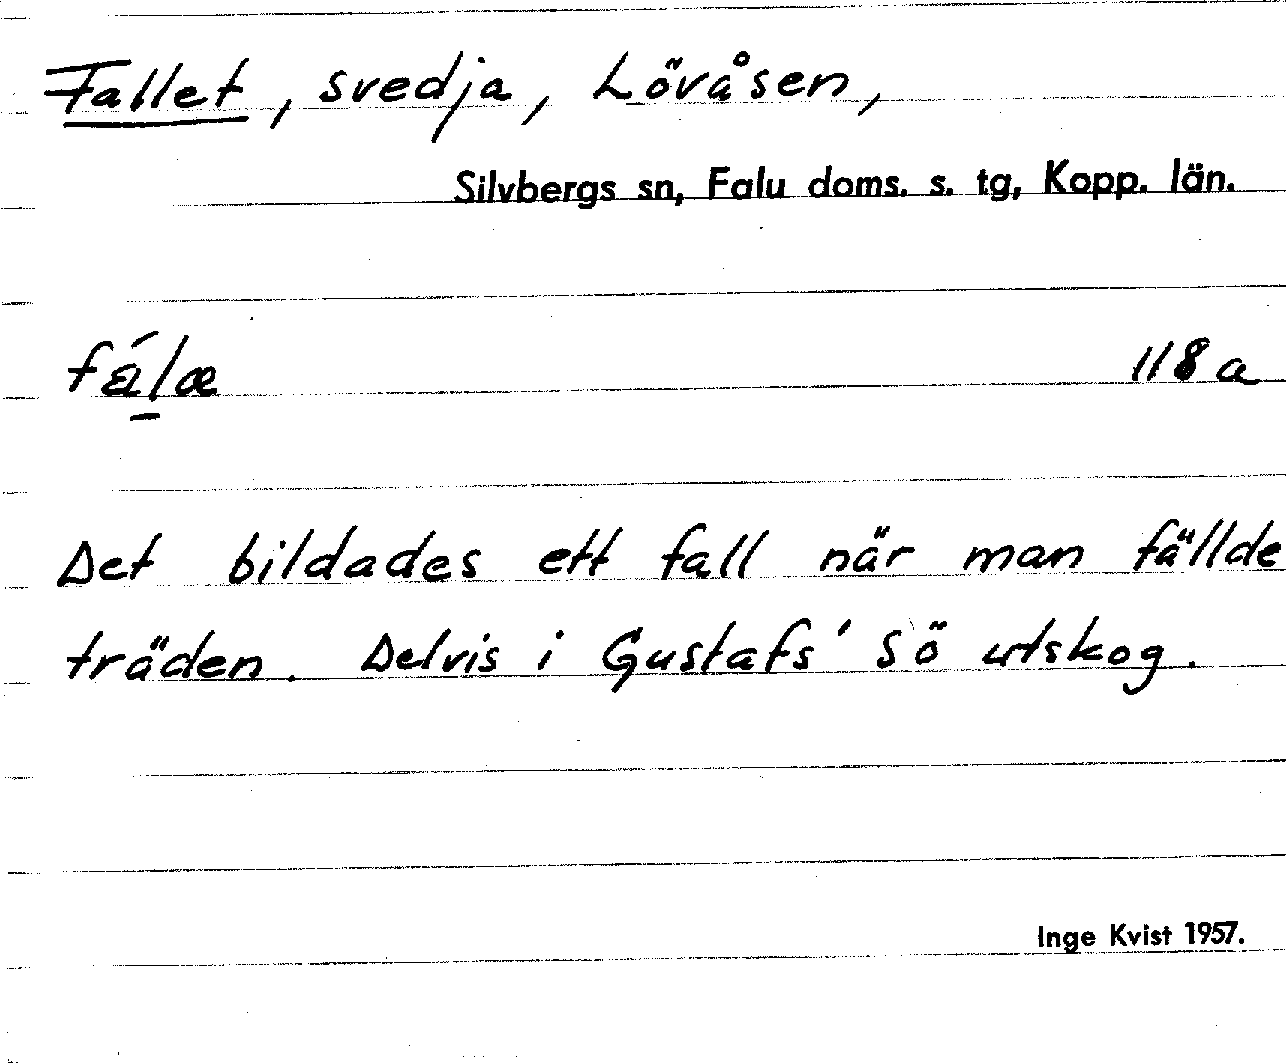 Fallet, svedja, Lövåsen,
Silvbergs sn, Falu doms. s. tg, Kopp. län.
fá̲læ 118 a
Det bildades ett fall när man fällde
träden. Delvis i Gustafs' sö utskog.
Inge Kvist 1957.